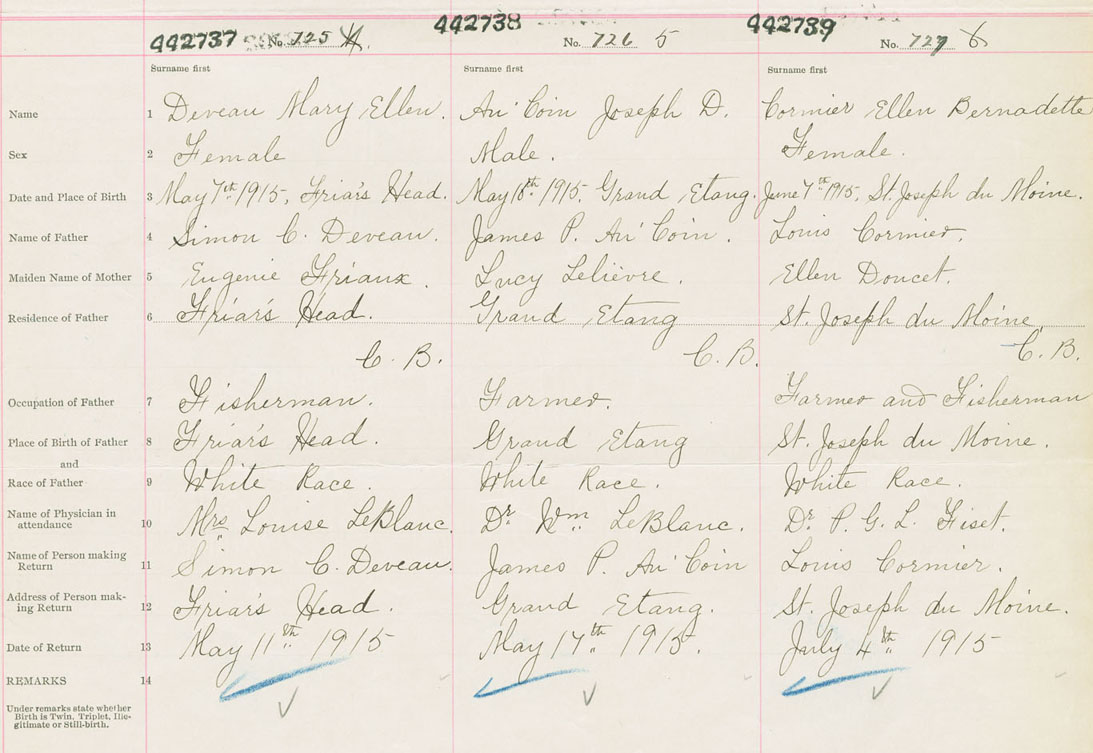 442737 No. 725 4. 442738 No. 726 5 442739 No. 727 6
Surname first Surname first Surname first
Name 1 Deveau Mary Ellen. Au'Coin Joseph D. Cormier Ellen Bernadette
Sex 2 Female Male. Female.
Date and Place of Birth 3 May 7th 1915, Friar's Head. May 10th 1915, Grand Etang. June 7th 1915, St. Joseph du Moine.
Name of Father 4 Simon C. Deveau. James P. Au'Coin. Louis Cormier.
Maiden Name of Mother 5 Eugenie Friaux. Lucy Lelièvre. Ellen Doucet.
Residence of Father 6 Friar's Head. Grand Etang St. Joseph du Moine,
C. B. C. B. C. B.
Occupation of Father 7 Fisherman. Farmer. Farmer and Fisherman
Place of Birth of Father 8 Friar's Head. Grand Etang St. Joseph du Moine.
and
Race of Father 9 White Race. White Race. White Race.
Name of Physician in
attendance 10 Mrs. Louise LeBlanc. Dr. Wm. LeBlanc. Dr. P. G. L. Fiset.
Name of Person making
Return 11 Simon C. Deveau. James P. Au'Coin Louis Cormier.
Address of Person mak-
ing Return 12 Friar's Head. Grand Etang. St. Joseph du Moine.
Date of Return 13 May 11th 1915 May 17th 1915. July 4th 1915
REMARKS 14
Under remarks state whether
Birth is Twin, Triplet, Ille-
gitimate or Still-birth.